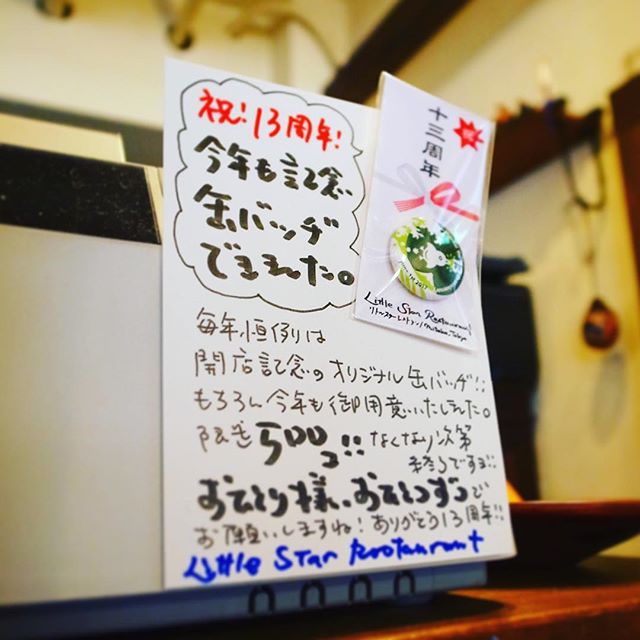 祝!13周年!
今年も記念
缶バッヂ
できました。
毎年恒例は
開店記念のオリジナル缶バッヂ!!
もちろん今年も御用意いたしました。
限定500コ!!なくなり次第
終了ですヨ!!
おひとり様、おひとつずつで
お願いしますね!ありがとう13周年!!
Little Star Restaurant
十三周年
Little Star Restaurant
リトルスターレストラン/Mitaka, Tokyo